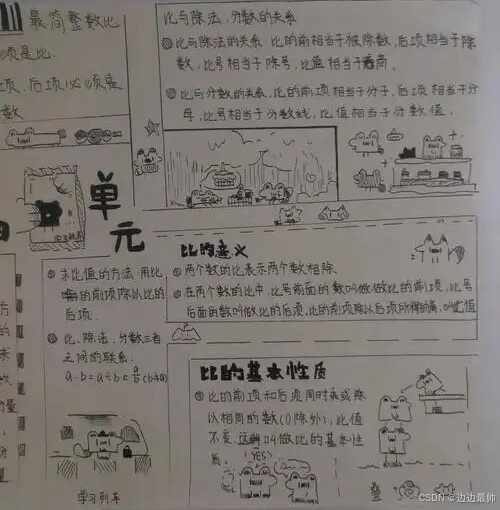 最简整数比
须是比.
项,后项必须是
数
比与除法,分数的关系
比与除法的关系 比的前相当于被除数,后项相当于除
数,比号相当于除号,比值相当于商.
比与分数的关系,比的前项相当于分子,后项相当于分
母,比号相当于分数线,比值相当于分数值.
单
元
求比值的方法 用比
的前项除以比的
后项.
比、除法,分数三者
之间的联系:
a:b=a÷b=a/b(b≠0)
学习列车
比的意义
两个数的比表示两个数相除.
在两个数的比中,比号前面的数叫做做比的前项,比号
后面的数叫做比的后项,比的前项除以后项所得的商,叫比值
比的基本性质
比的前项和后项同时乘或除
以相同的数(0除外),比值
不变,这叫做比的基本性
质.
YES!
方
的
来
量
分
CSDN @边边最帅